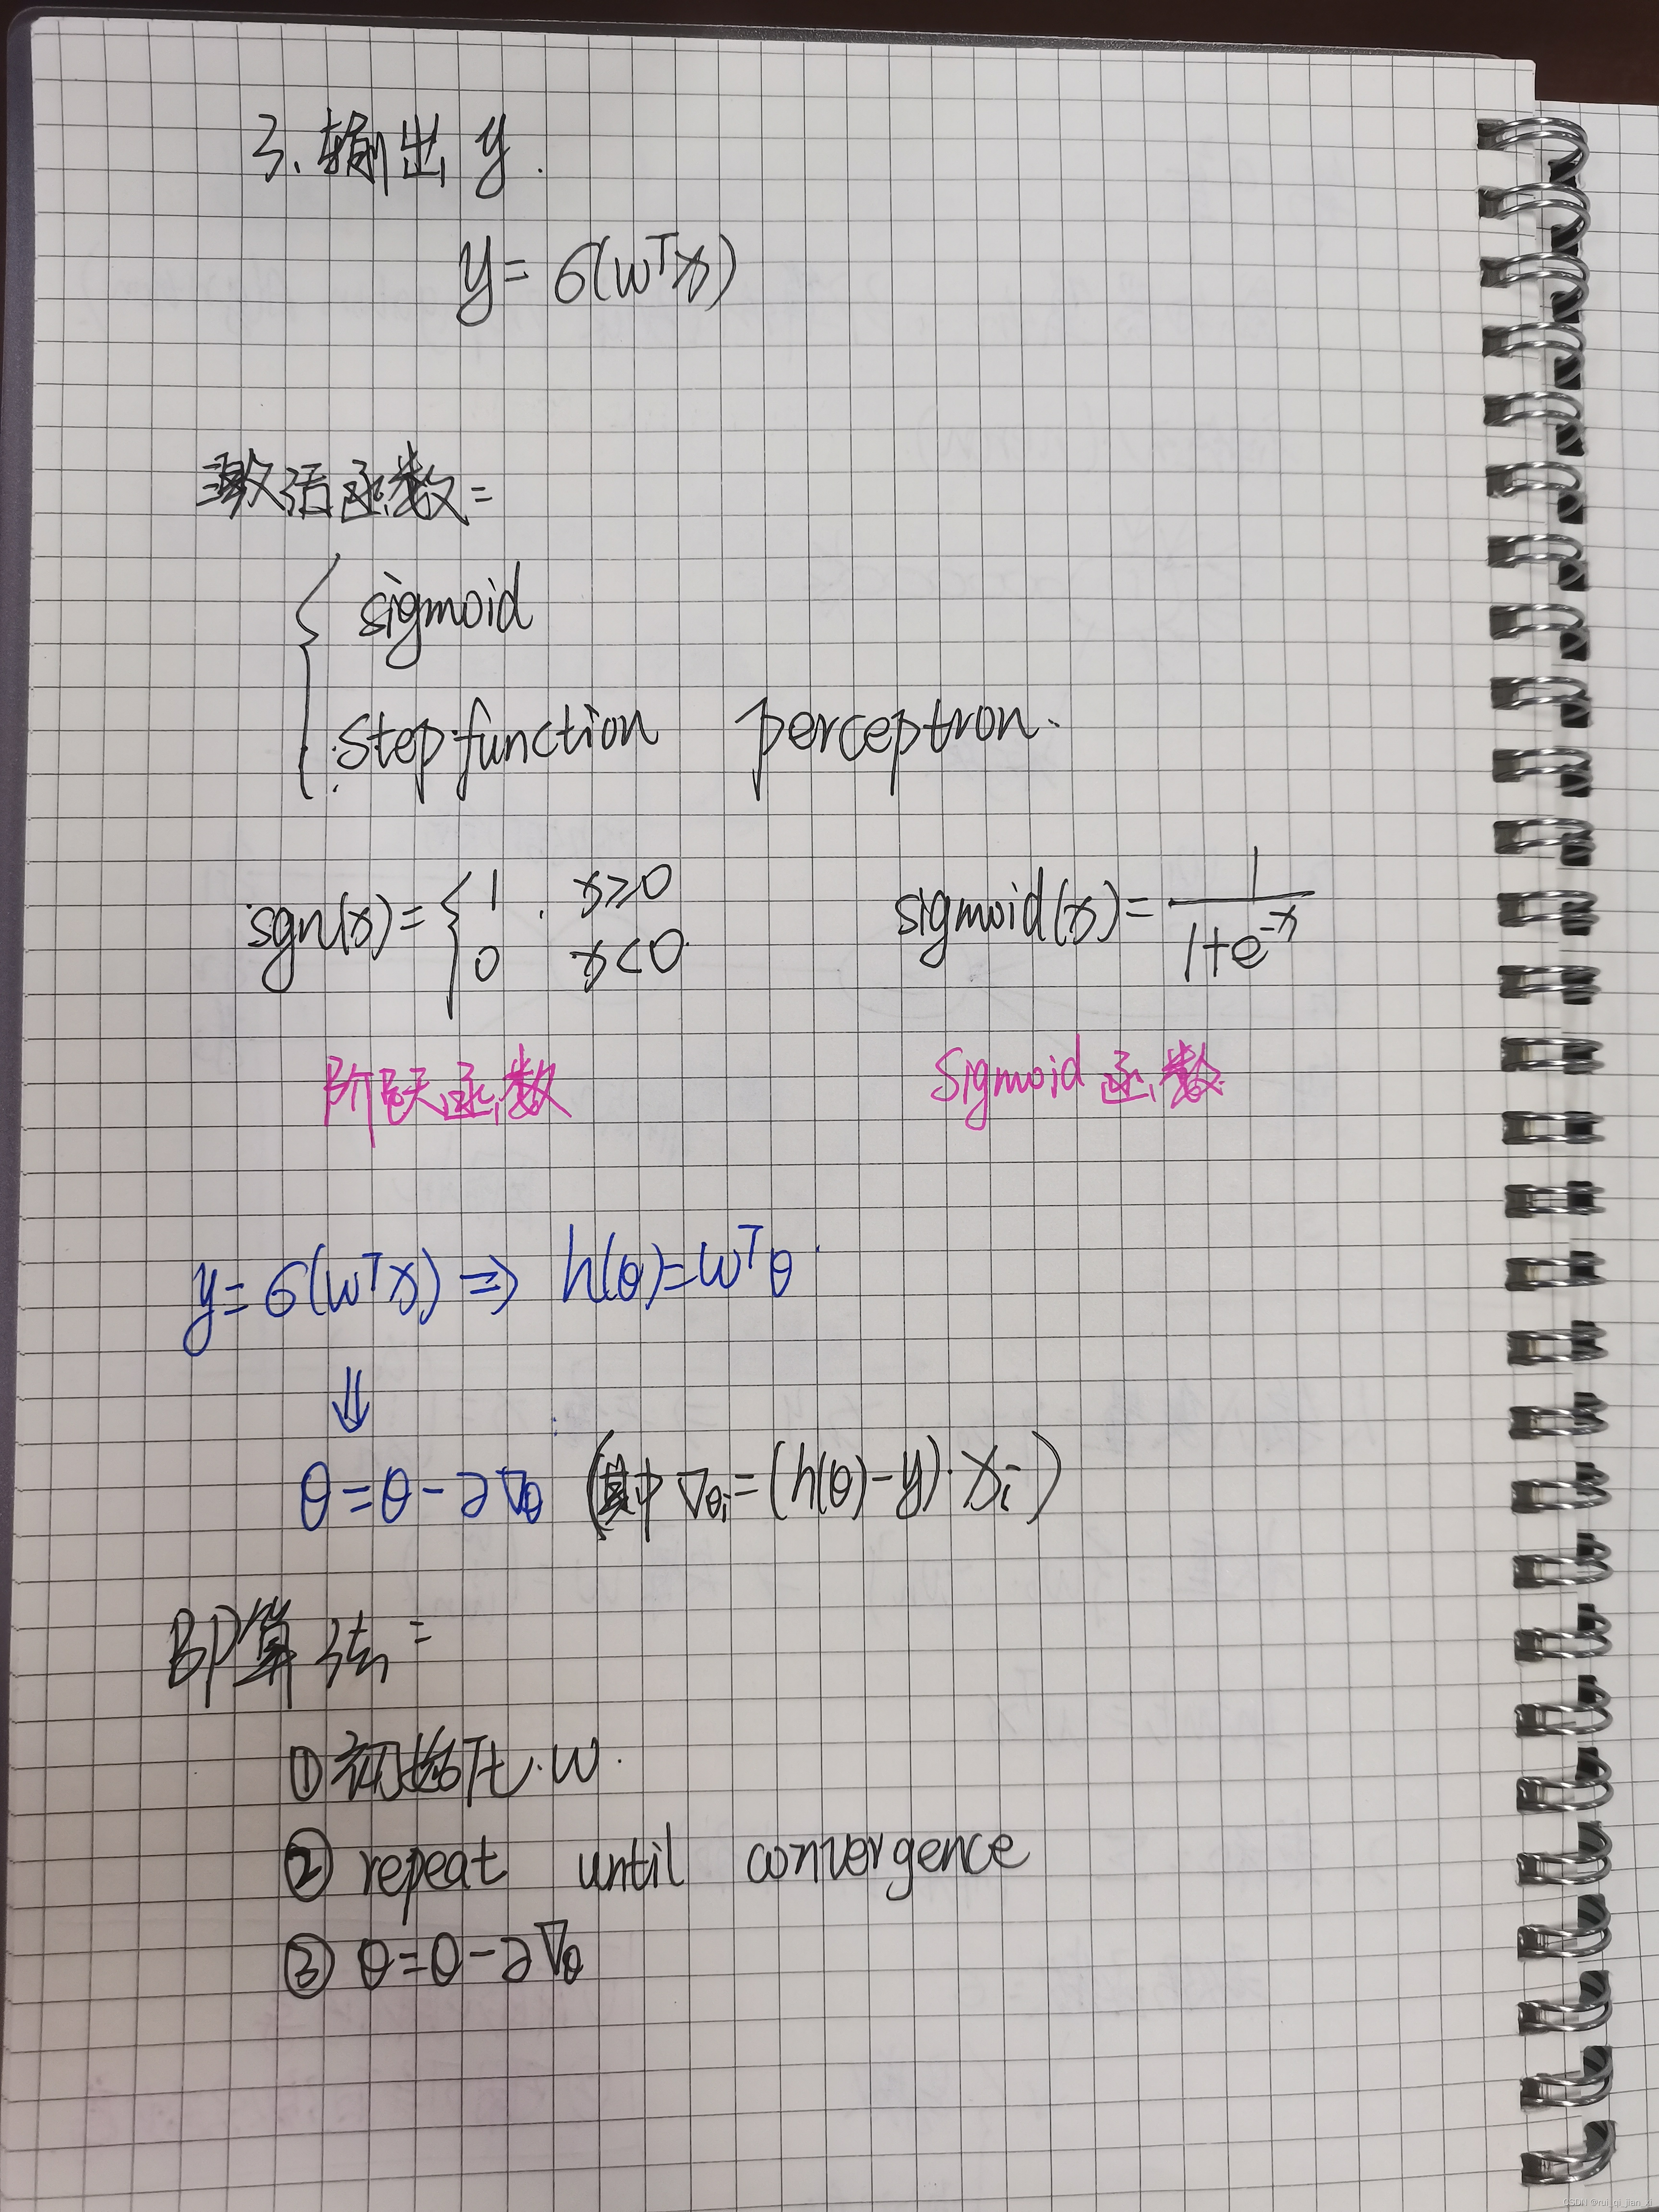 3. 输出 y.
y = σ(wᵀx)
激活函数:
sigmoid
step function perceptron.
sgn(x) = { 1, x≥0
0 x<0
sigmoid(x) = 1/(1+e^{-x})
阶跃函数 Sigmoid 函数
y = σ(wᵀx) ⇒ h(θ) = wᵀθ
⇓
θ = θ - ∂∇θ (其中 ∇θi = (h(θ) - y)·xi)
BP算法:
① 初始化 w.
② repeat until convergence
③ θ = θ - ∂∇θ